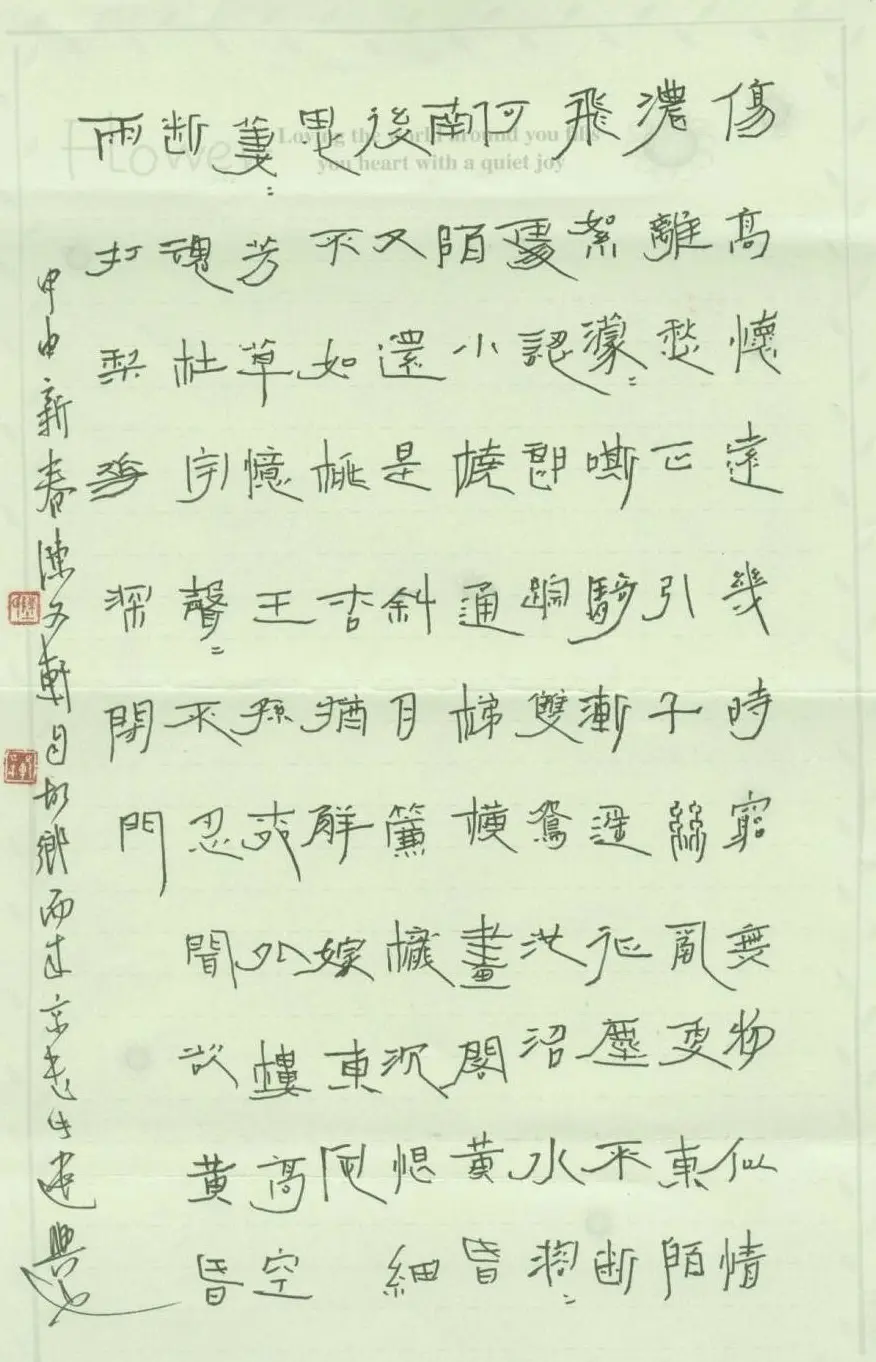 傷高懷遠幾時窮無物似情
濃離愁正引千絲亂更東陌
飛絮濛=嘶騎漸遥征塵不断
何處認郎蹤雙鴛池沼水溶=
南陌小橈通梯橫畫閣黃昏
後又還是斜月簾櫳沉恨細
思不如桃杏猶解嫁東風
萋=芳草憶王孫柳外樓高空
断魂杜宇聲=不忍聞欲黃昏
雨打梨花深閉門
甲申新春陳文軒自故鄉 京 遣興
Flower
Loving the world around you fills
you heart with a quiet joy